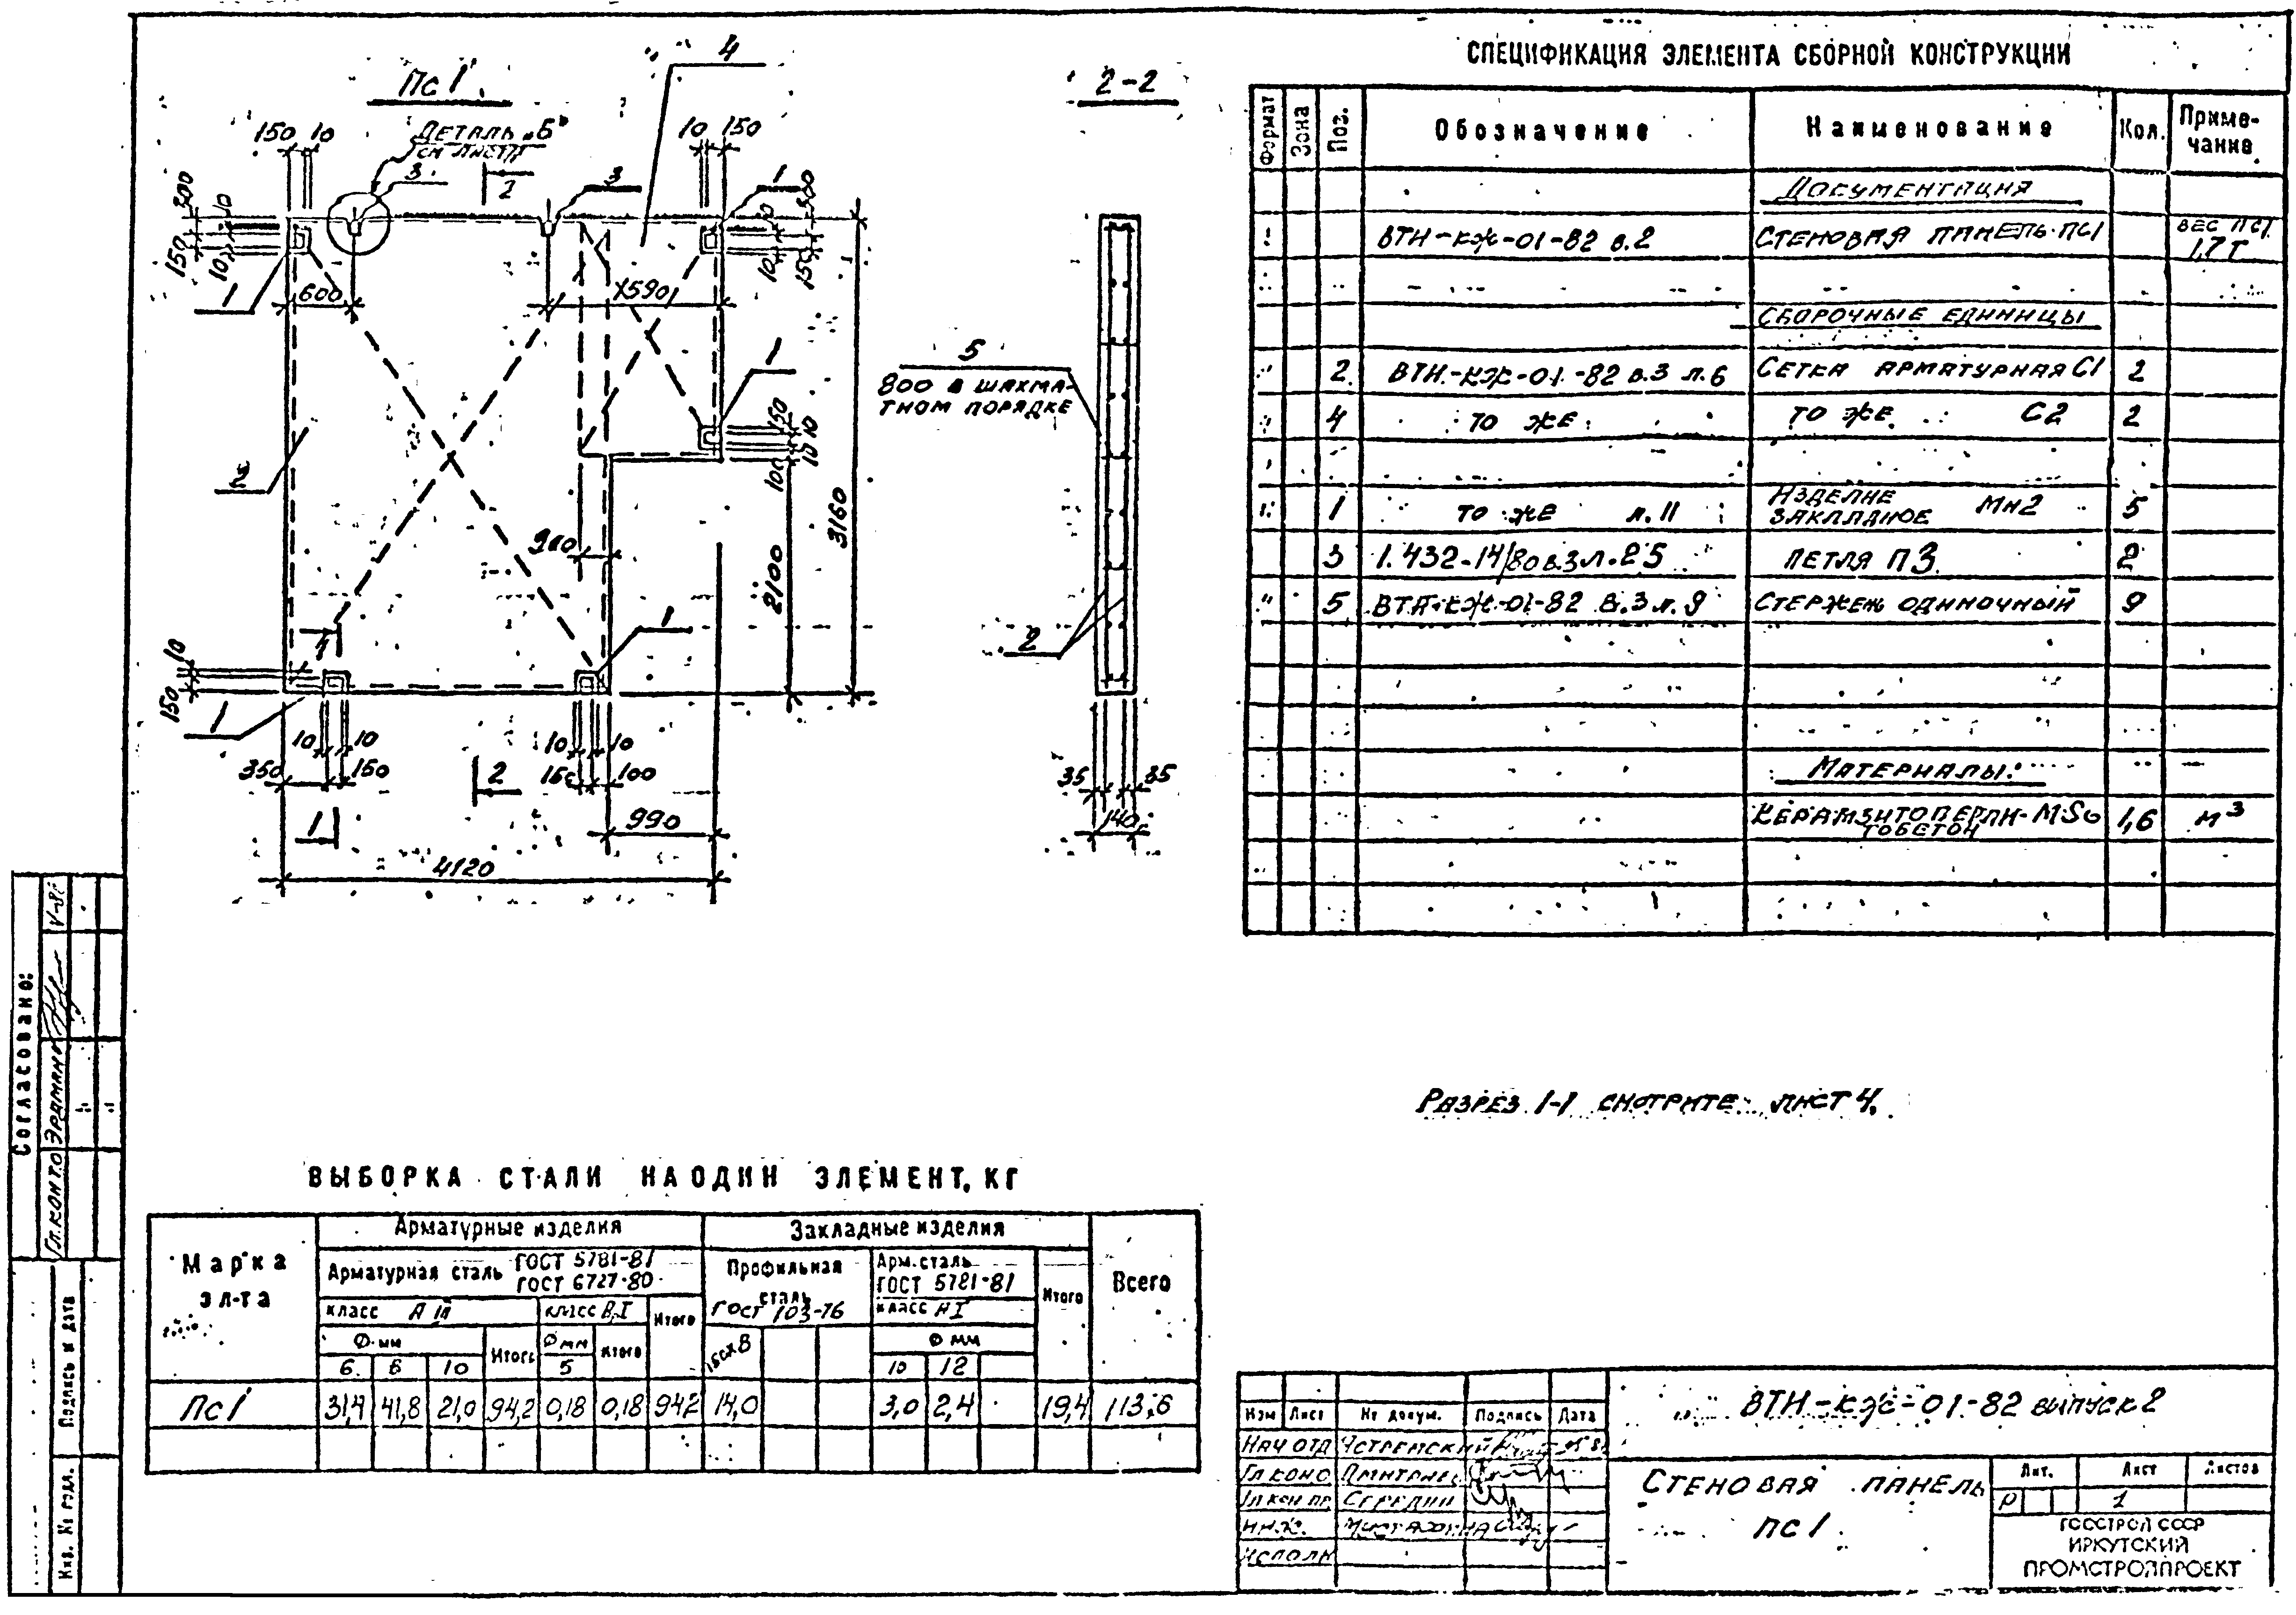 Пс1
ДЕТАЛЬ „Б"
2-2
4
150 10
10 150
3
3
1
2
300
10
150
10
10
300
10
150
1
600
1590
1
150
10
10
100
2
900
3160
2100
1
1
10
150
1
10 10
350 150
10 10
100
2
1
990
4120
5
800 В ШАХМА-
ТНОМ ПОРЯДКЕ
2
35 35
140
СПЕЦИФИКАЦИЯ ЭЛЕМЕНТА СБОРНОЙ КОНСТРУКЦИИ
Формат Зона Поз. Обозначение Наименование Кол. Приме-
чание
ДОКУМЕНТАЦИЯ
ВТН-КЖ-01-82 в.2 СТЕНОВАЯ ПАНЕЛЬ ПС1 ВЕС ПС1
1,7 Т
СБОРОЧНЫЕ ЕДИНИЦЫ
2 ВТН-КЖ-01-82 в.3 л.6 СЕТКА АРМАТУРНАЯ С1 2
4 ТО ЖЕ ТО ЖЕ С2 2
1 ТО ЖЕ л.11 ИЗДЕЛИЕ
ЗАКЛАДНОЕ МН2 5
3 1.432-14/80 в.3 л.25 ПЕТЛЯ П3 2
5 ВТН-КЖ-01-82 в.3 л.9 СТЕРЖЕНЬ ОДИНОЧНЫЙ 9
МАТЕРИАЛЫ:
КЕРАМЗИТОПЕРЛИ-
ТОБЕТОН М50 1,6 м³
РАЗРЕЗ 1-1 СМОТРИТЕ ЛИСТ 4.
ВЫБОРКА СТАЛИ НА ОДИН ЭЛЕМЕНТ, КГ
Марка
эл-та
Арматурные изделия
Закладные изделия
Всего
Арматурная сталь ГОСТ 5781-81
ГОСТ 6727-80
Профильная
сталь
ГОСТ 103-76
Арм.сталь
ГОСТ 5781-81
Итого
класс А III класс Вр I Итого
класс А I
Ф мм Итого Ф мм Итого
Ф мм
6 8 10 5 150х8 10 12
Пс1 31,4 41,8 21,0 94,2 0,18 0,18 94,2 14,0 3,0 2,4 19,4 113,6
Согласовано:
Гл.КОНТО ЭРДМАН
Подпись и дата
Инв. № подл.
Изм Лист № докум. Подпись Дата
НАЧ ОТД
ГЛ КОНС
ГЛ КОН ПР СЕРЕДИН
ИНЖ.
ИСПОЛН
ВТН-КЖ-01-82 выпуск 2
СТЕНОВАЯ ПАНЕЛЬ
ПС1
Лит. Лист Листов
Р 1
ГОССТРОЙ СССР
ИРКУТСКИЙ
ПРОМСТРОЙПРОЕКТ